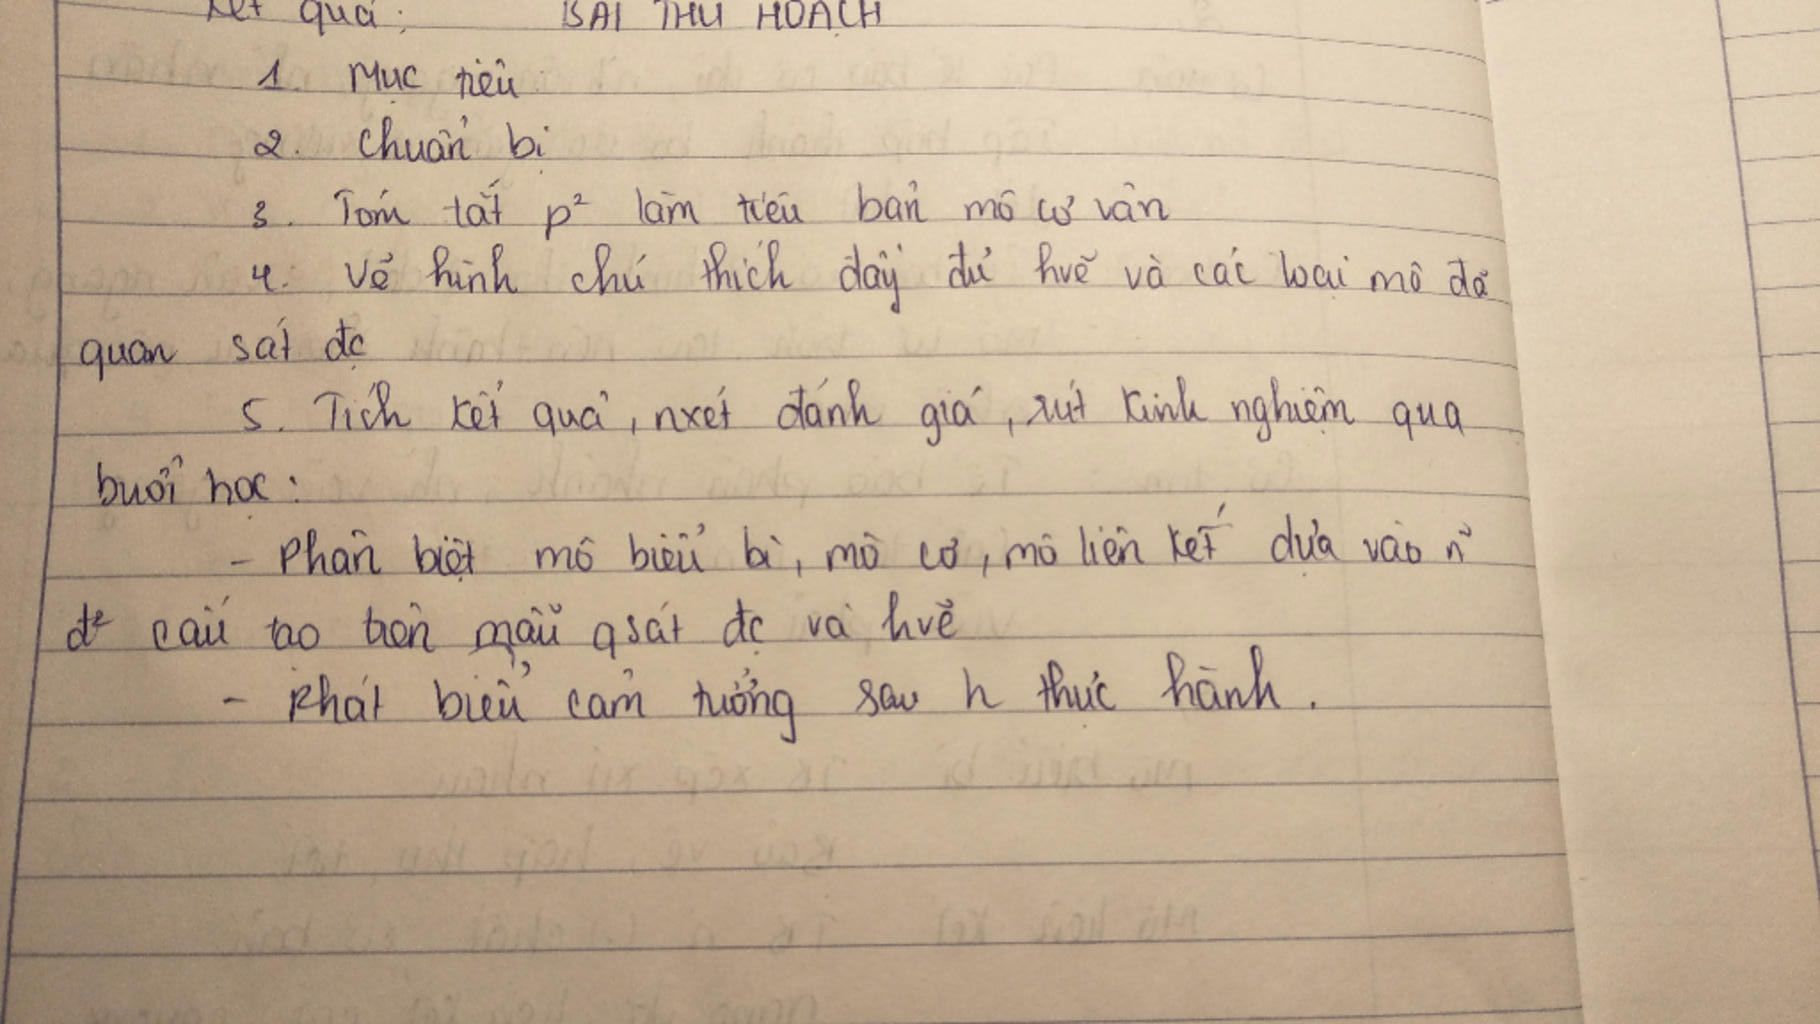 Kết quả: BÀI THU HOẠCH
1. Mục tiêu
2. Chuẩn bị
3. Tóm tắt p² làm tiêu bản mô cơ vân
4. Vẽ hình chú thích đầy đủ hvẽ và các loại mô đã
quan sát đc
5. Tích kết quả, nxét đánh giá, rút kinh nghiệm qua
buổi học:
- Phân biệt mô biểu bì, mô cơ, mô liên kết dựa vào n~
đ² cấu tạo trên mẫu qsát đc và hvẽ
- Phát biểu cảm tưởng sau h thực hành.